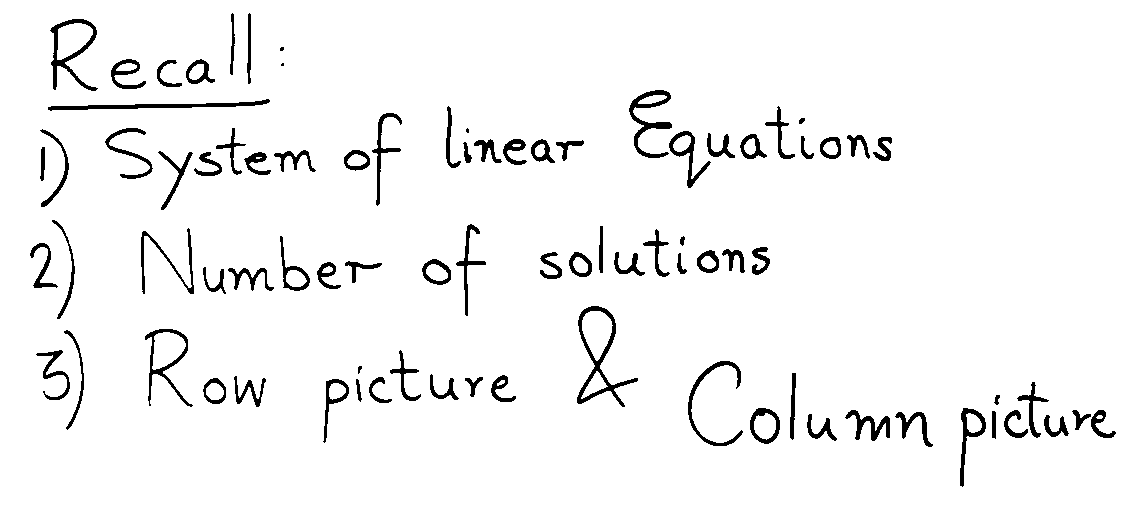 Recall:
1) System of linear Equations
2) Number of solutions
3) Row picture & Column picture